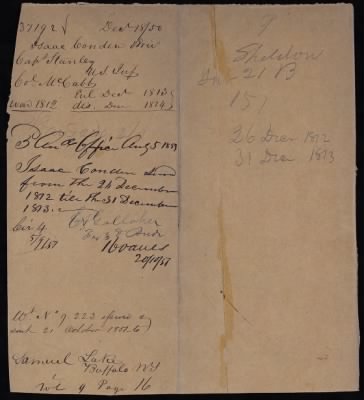 37192 Dec 18/50
Isaac Conden
Capt Stanley
U.S. Inf
Co. McCabb
Enl Decr 1812
War 1812 dis. Decr 1814
3 Aud Office Aug 5 1851
Isaac Conden
from the 26 December
1812 till the 31 December
1813.
E. Gallaher
for 3d Audr
Cir 4
5/9/51
160 acres
20/10/51
Wt. No 9.223
sent 21 October 1851
Samuel Lake
Buffalo NY
Vol 9 Page 16
9
Sheldon
21 B
15
26 Decr 1812
31 Decr 1813